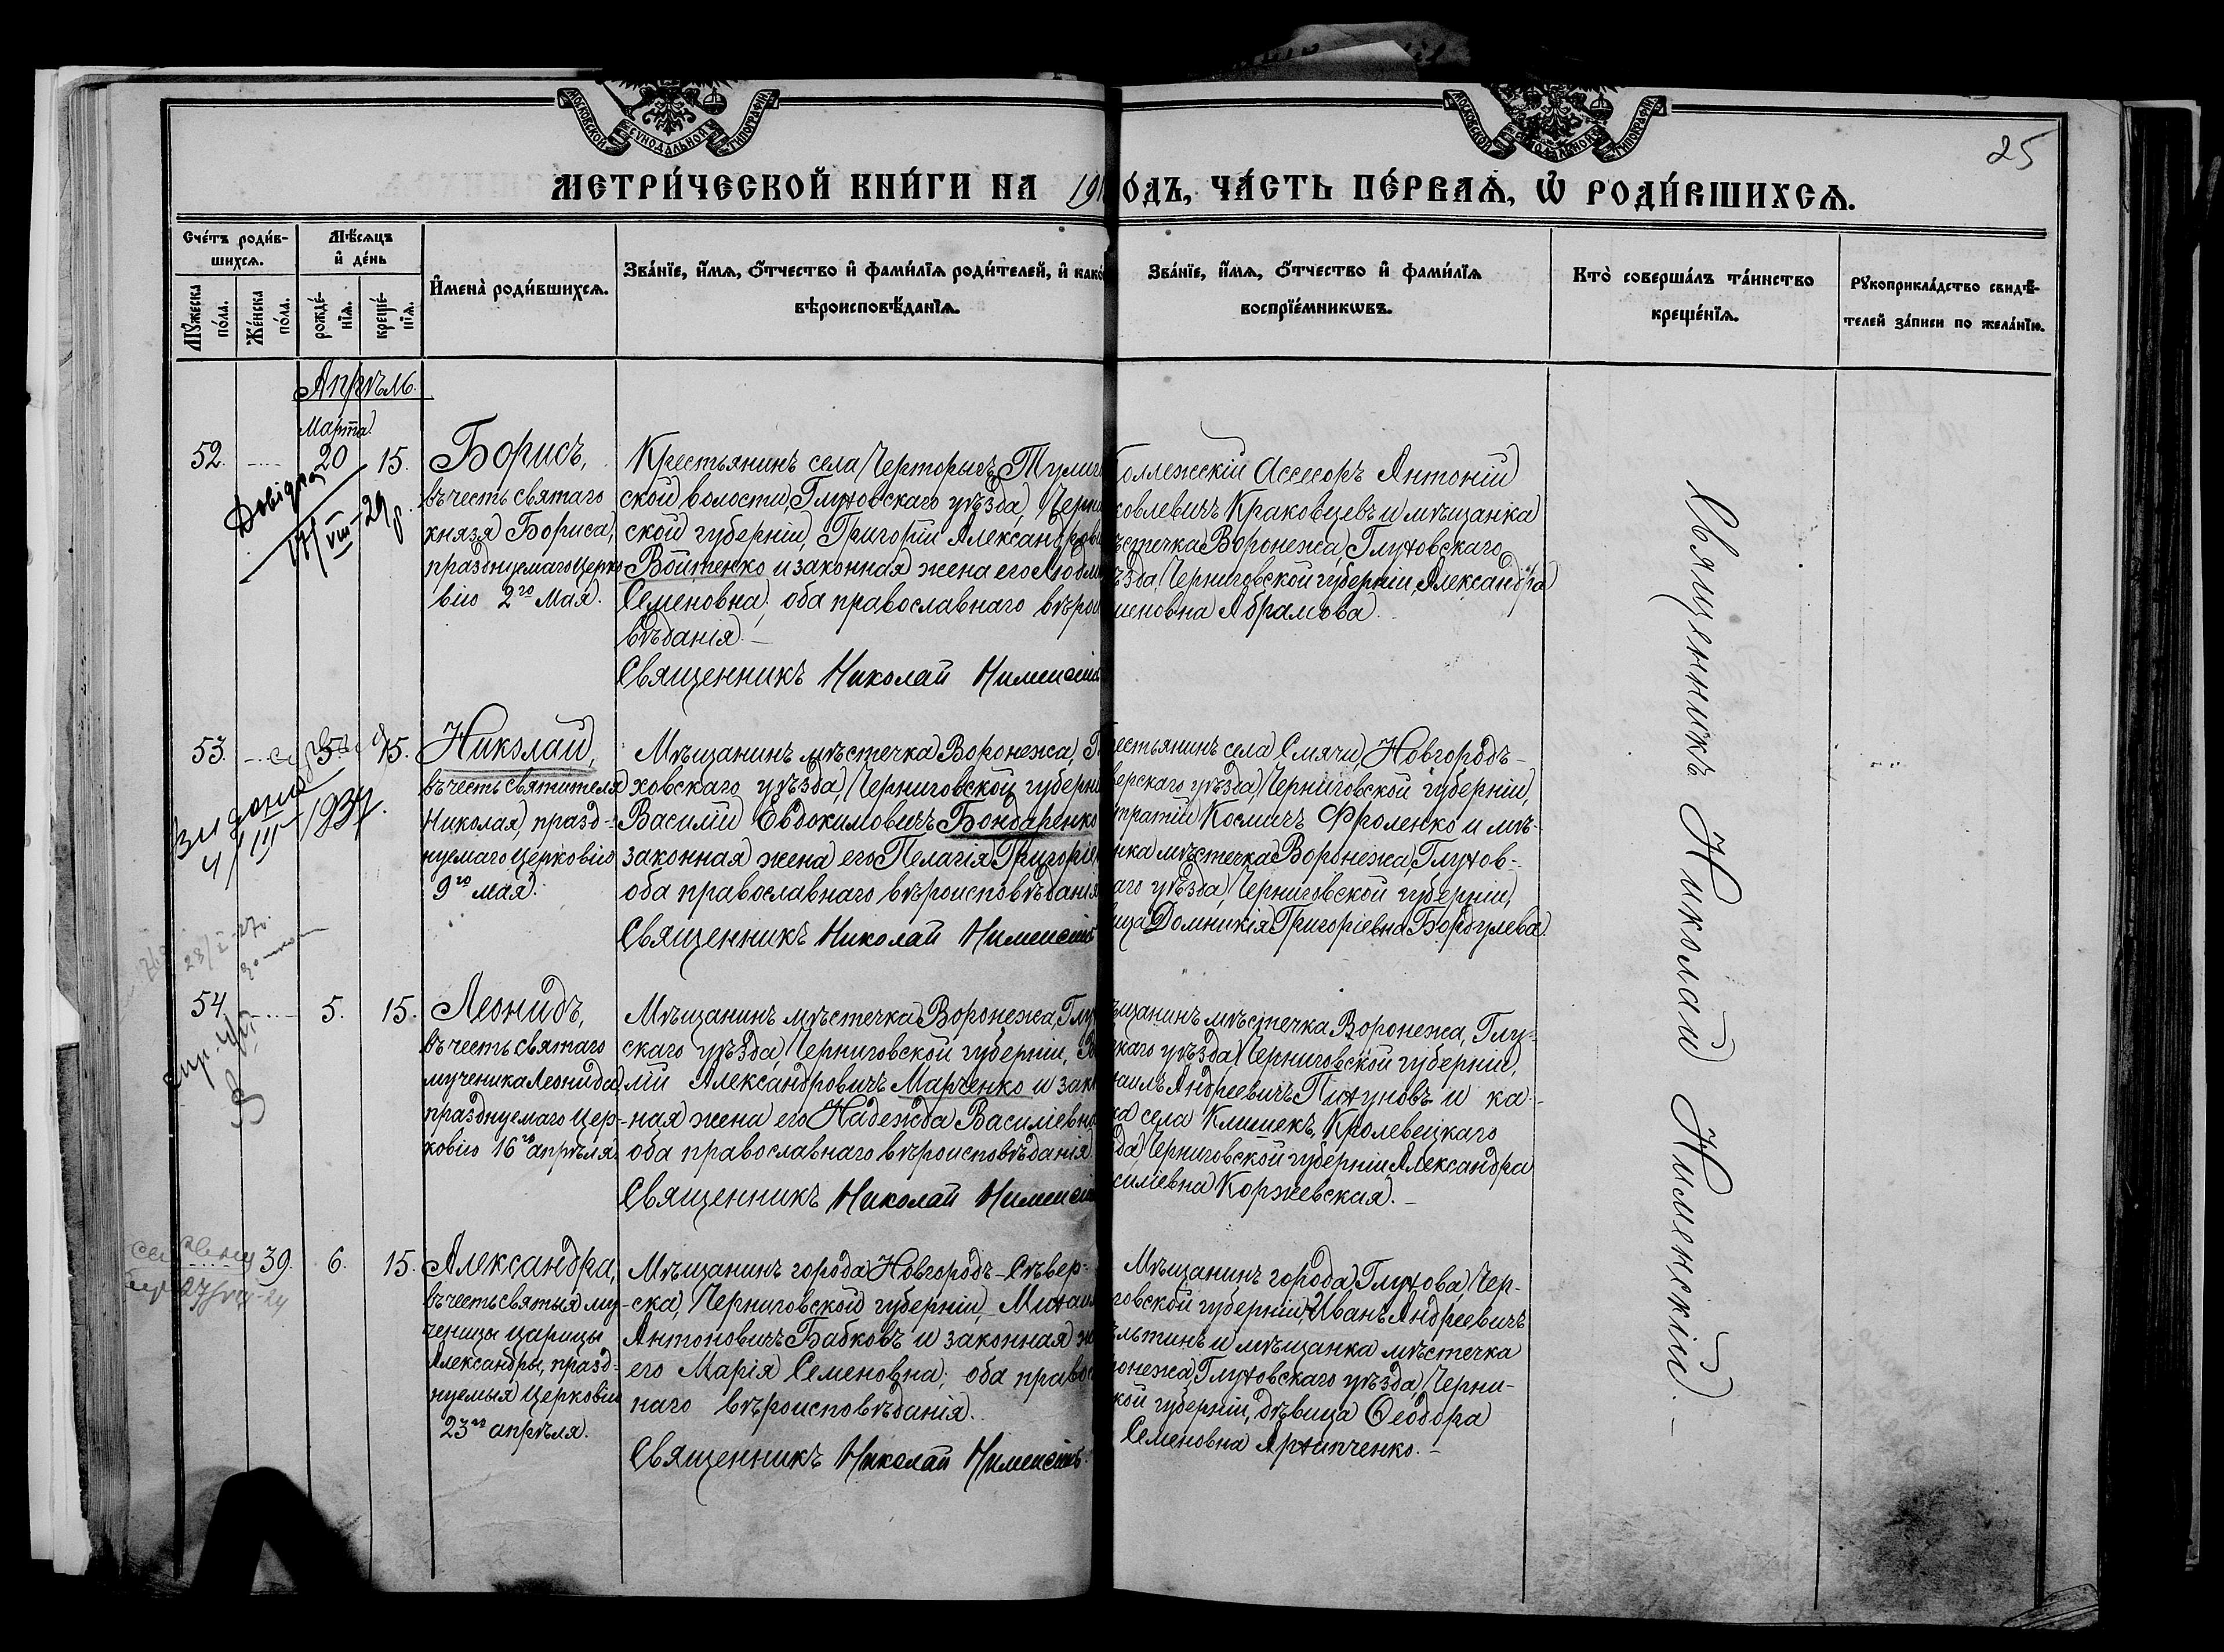 МОСКОВСКОЙ СУНОДАЛЬНОЙ ТИПОГРАФІИ
МОСКОВСКОЙ СУНОДАЛЬНОЙ ТИПОГРАФІИ
25
МЕТРИ́ЧЕСКОЙ КНИ́ГИ НА 191
О́ДЪ, ЧА́СТЬ ПЕ́РВАѦ, Ѡ҆ РОДИ́ВШИХСѦ.
Сче́тъ роди́в-
шихсѧ.
Мѣ́сѧцъ
и҆ де́нь
Мꙋ́жеска
по́ла.
Же́нска
по́ла.
рожде́-
нїѧ.
креще́-
нїѧ.
И҆мена̀ роди́вшихсѧ.
Зва́нїе, и҆́мѧ, ѻ҆́тчество и҆ фами́лїѧ роди́телей, и҆ како́
вѣроисповѣ́данїѧ.
Зва́нїе, и҆́мѧ, ѻ҆́тчество и҆ фами́лїѧ
воспрїе́мникѡвъ.
Кто̀ соверша́лъ та́инство
креще́нїѧ.
Рꙋкоприкла́дство свидѣ́-
телей за́писи по жела́нїю.
Апрѣль.
Марта
52. 20 15.
Довідка
17/VIII-29 р.
Борисъ,
въ честь святаго
князя Бориса,
празднуемаго Церко-
вію 2го Мая.
Крестьянинъ села Черторыгъ, Тулиг
ской волости, Глуховскаго уѣзда, Черни
ской губерніи, Григорій Александрови
Войтенко и законная жена его Любов
Семеновна; оба православнаго вѣрои
вѣданія.
Священникъ Николай Нименскій
оллежскій Ассесоръ Антоній
ковлевичъ Краковцевъ и мѣщанка
ѣстечка Воронежа, Глуховскаго
ѣзда, Черниговской губерніи, Александра
меновна Абрамова.
53. 5. 15.
4/III 1937.
Николай,
въ честь святителя
Николая, празд-
нуемаго Церковію
9го мая.
Мѣщанинъ мѣстечка Воронежа, Г
ховскаго уѣзда, Черниговской губерні
Василій Евдокимовичъ Бондаренко
законная жена его Пелагія Григоріе
оба православнаго вѣроисповѣданія
Священникъ Николай Нименскій
рестьянинъ села Смячи, Новгородъ-
верскаго уѣзда, Черниговской губерніи,
тратій Космичъ Фроленко и мѣ-
нка мѣстечка Воронежа, Глухов-
аго уѣзда, Черниговской губерніи,
ица Домникія Григоріевна Бордулева.
23/I-27р.
54. 5. 15.
Леонидъ,
въ честь святаго
мученика Леонида,
празднуемаго Цер-
ковію 16го апрѣля.
Мѣщанинъ мѣстечка Воронежа, Глу
скаго уѣзда, Черниговской губерніи,
лій Александровичъ Марченко и зако
ная жена его Надежда Василіевна
оба православнаго вѣроисповѣданія.
Священникъ Николай Нименскій
ѣщанинъ мѣстечка Воронежа, Глу-
скаго уѣзда, Черниговской губерніи,
хаилъ Андреевичъ Пихуновъ и ка-
ка села Клишекъ, Кролевецкаго
да, Черниговской губерніи Александра
силіевна Коржевская.
39. 6. 15.
Александра,
въ честь святыя му-
ченицы царицы
Александры, празд-
нуемыя Церковію
23го апрѣля.
Мѣщанинъ города Новгородъ-Сѣвер-
ска, Черниговской губерніи, Михаил
Антоновичъ Бабковъ и законная ж
его Марія Семеновна; оба правос
наго вѣроисповѣданія.
Священникъ Николай Нименскій
Мѣщанинъ города Глухова, Чер-
говской губерніи, Иванъ Андреевичъ
льтинъ и мѣщанка мѣстечка
ронежа, Глуховскаго уѣзда, Черни-
кой губерніи, дѣвица Ѳеодора
Семеновна Архипченко.
Священникъ Николай Нименскій.